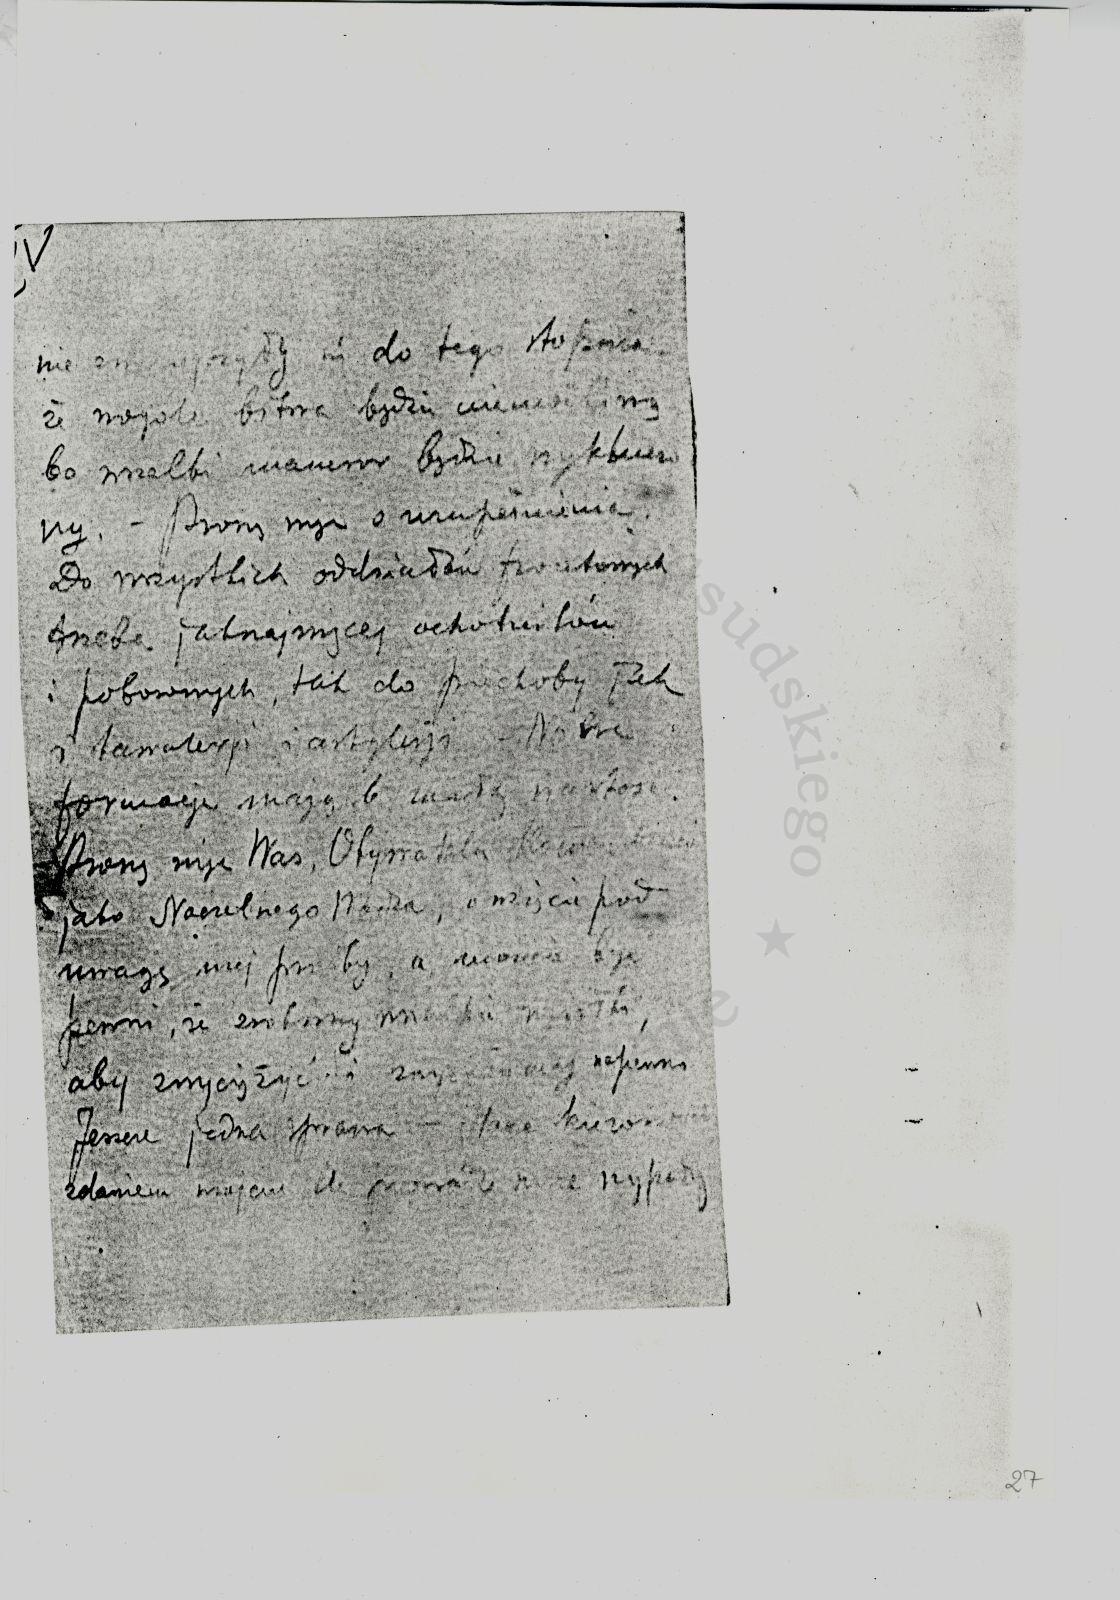 IV
nie do tego stopnia
że wogóle bitwa będzie niemożliwą
bo wszelki manewr będzie wykluczo
ny. - Proszę więc o uzupełnienia.
Do wszystkich oddziałów frontowych
trzeba jaknajwięcej ochotników
i poborowych, tak do piechoty jak
i kawalerji i artylerji - Nowe
formacje mają b. małą wartość.
Proszę więc Was, Obywatelu Komendancie
jako Naczelnego Wodza, o wzięcie pod
uwagę mej prośby, a możecie być
pewni, że zrobimy wszelkie wysiłki,
aby zwyciężyć i zwyciężymy napewno
Jeszcze jedna sprawa -
zdaniem mojem wypady
27
sudskiego